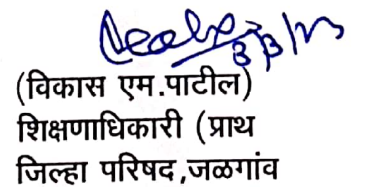 3/3/23
(विकास एम.पाटील)
शिक्षणाधिकारी (प्राथ
जिल्हा परिषद,जळगांव